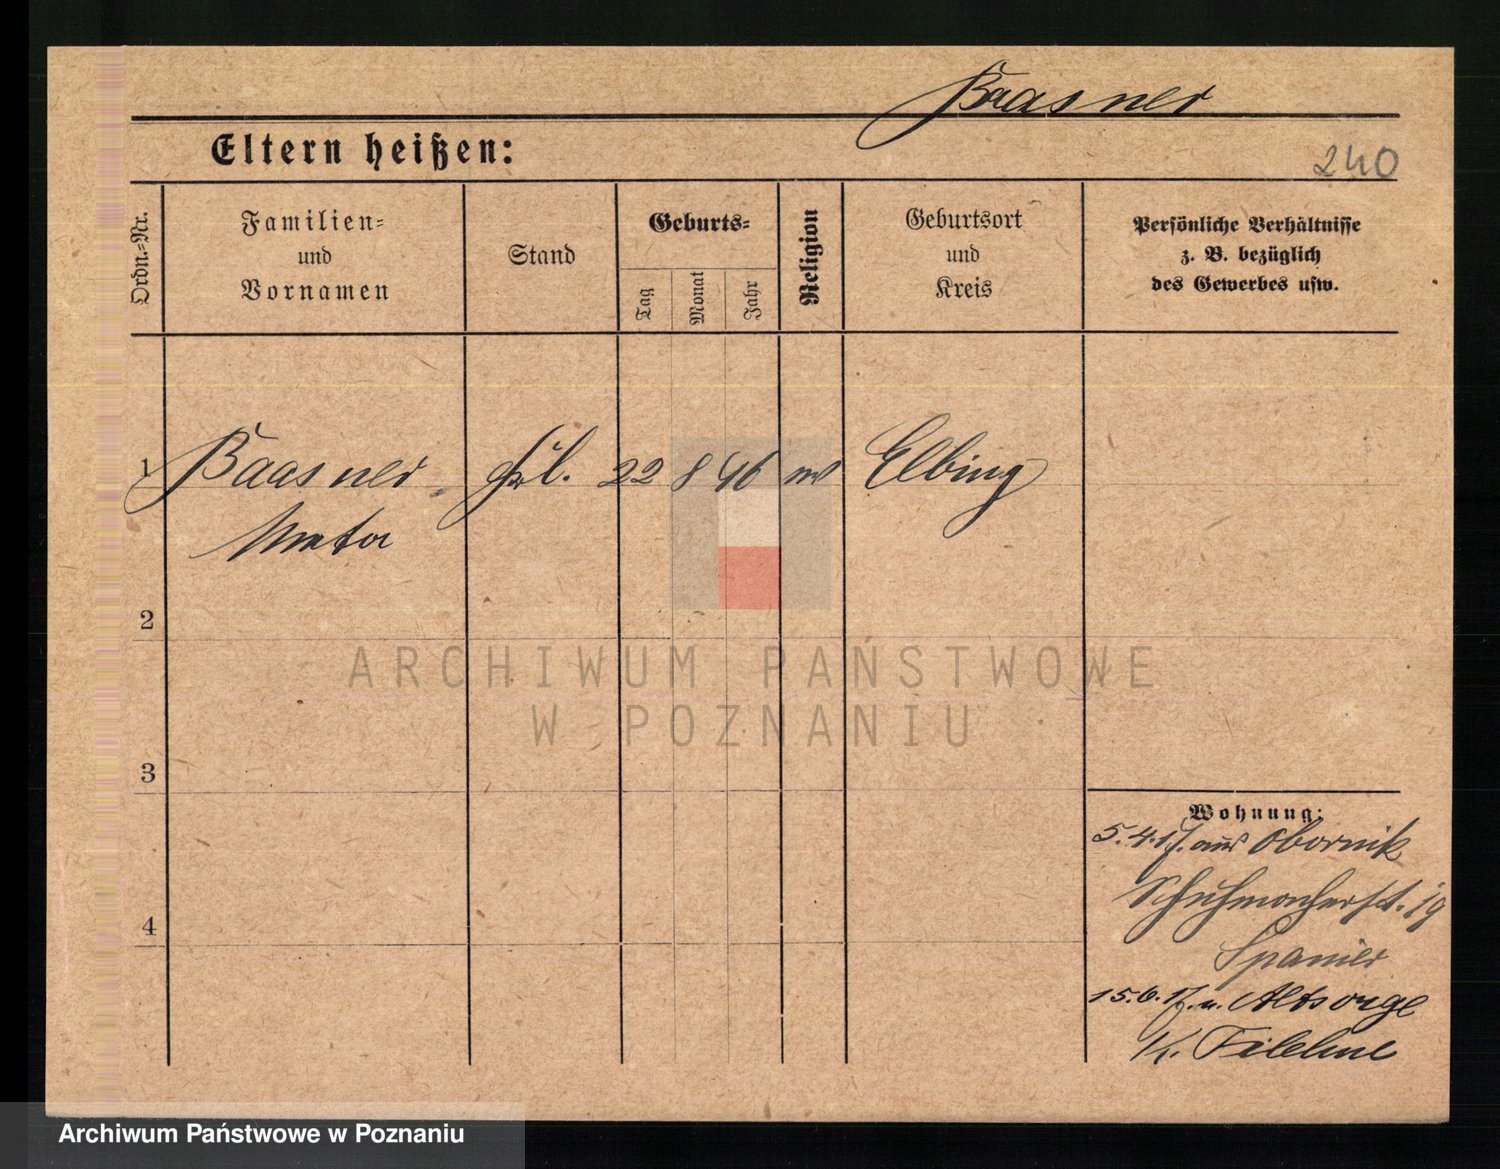 Baasner
Eltern heißen:
240
Ordn.-Nr.
Familien-
und
Vornamen
Stand
Geburts-
Tag
Monat
Jahr
Religion
Geburtsort
und
Kreis
Persönliche Verhältnisse
z. B. bezüglich
des Gewerbes usw.
1 Baasner Frl. 22 8 46 Elbing
Meta
2
ARCHIWUM PAŃSTWOWE
W POZNANIU
3
Wohnung:
5.4.17. aus Obornik
Schuhmacherst. 19
4
Spanier
15.6.17. n. Altsorge
K. Filehne
Archiwum Państwowe w Poznaniu